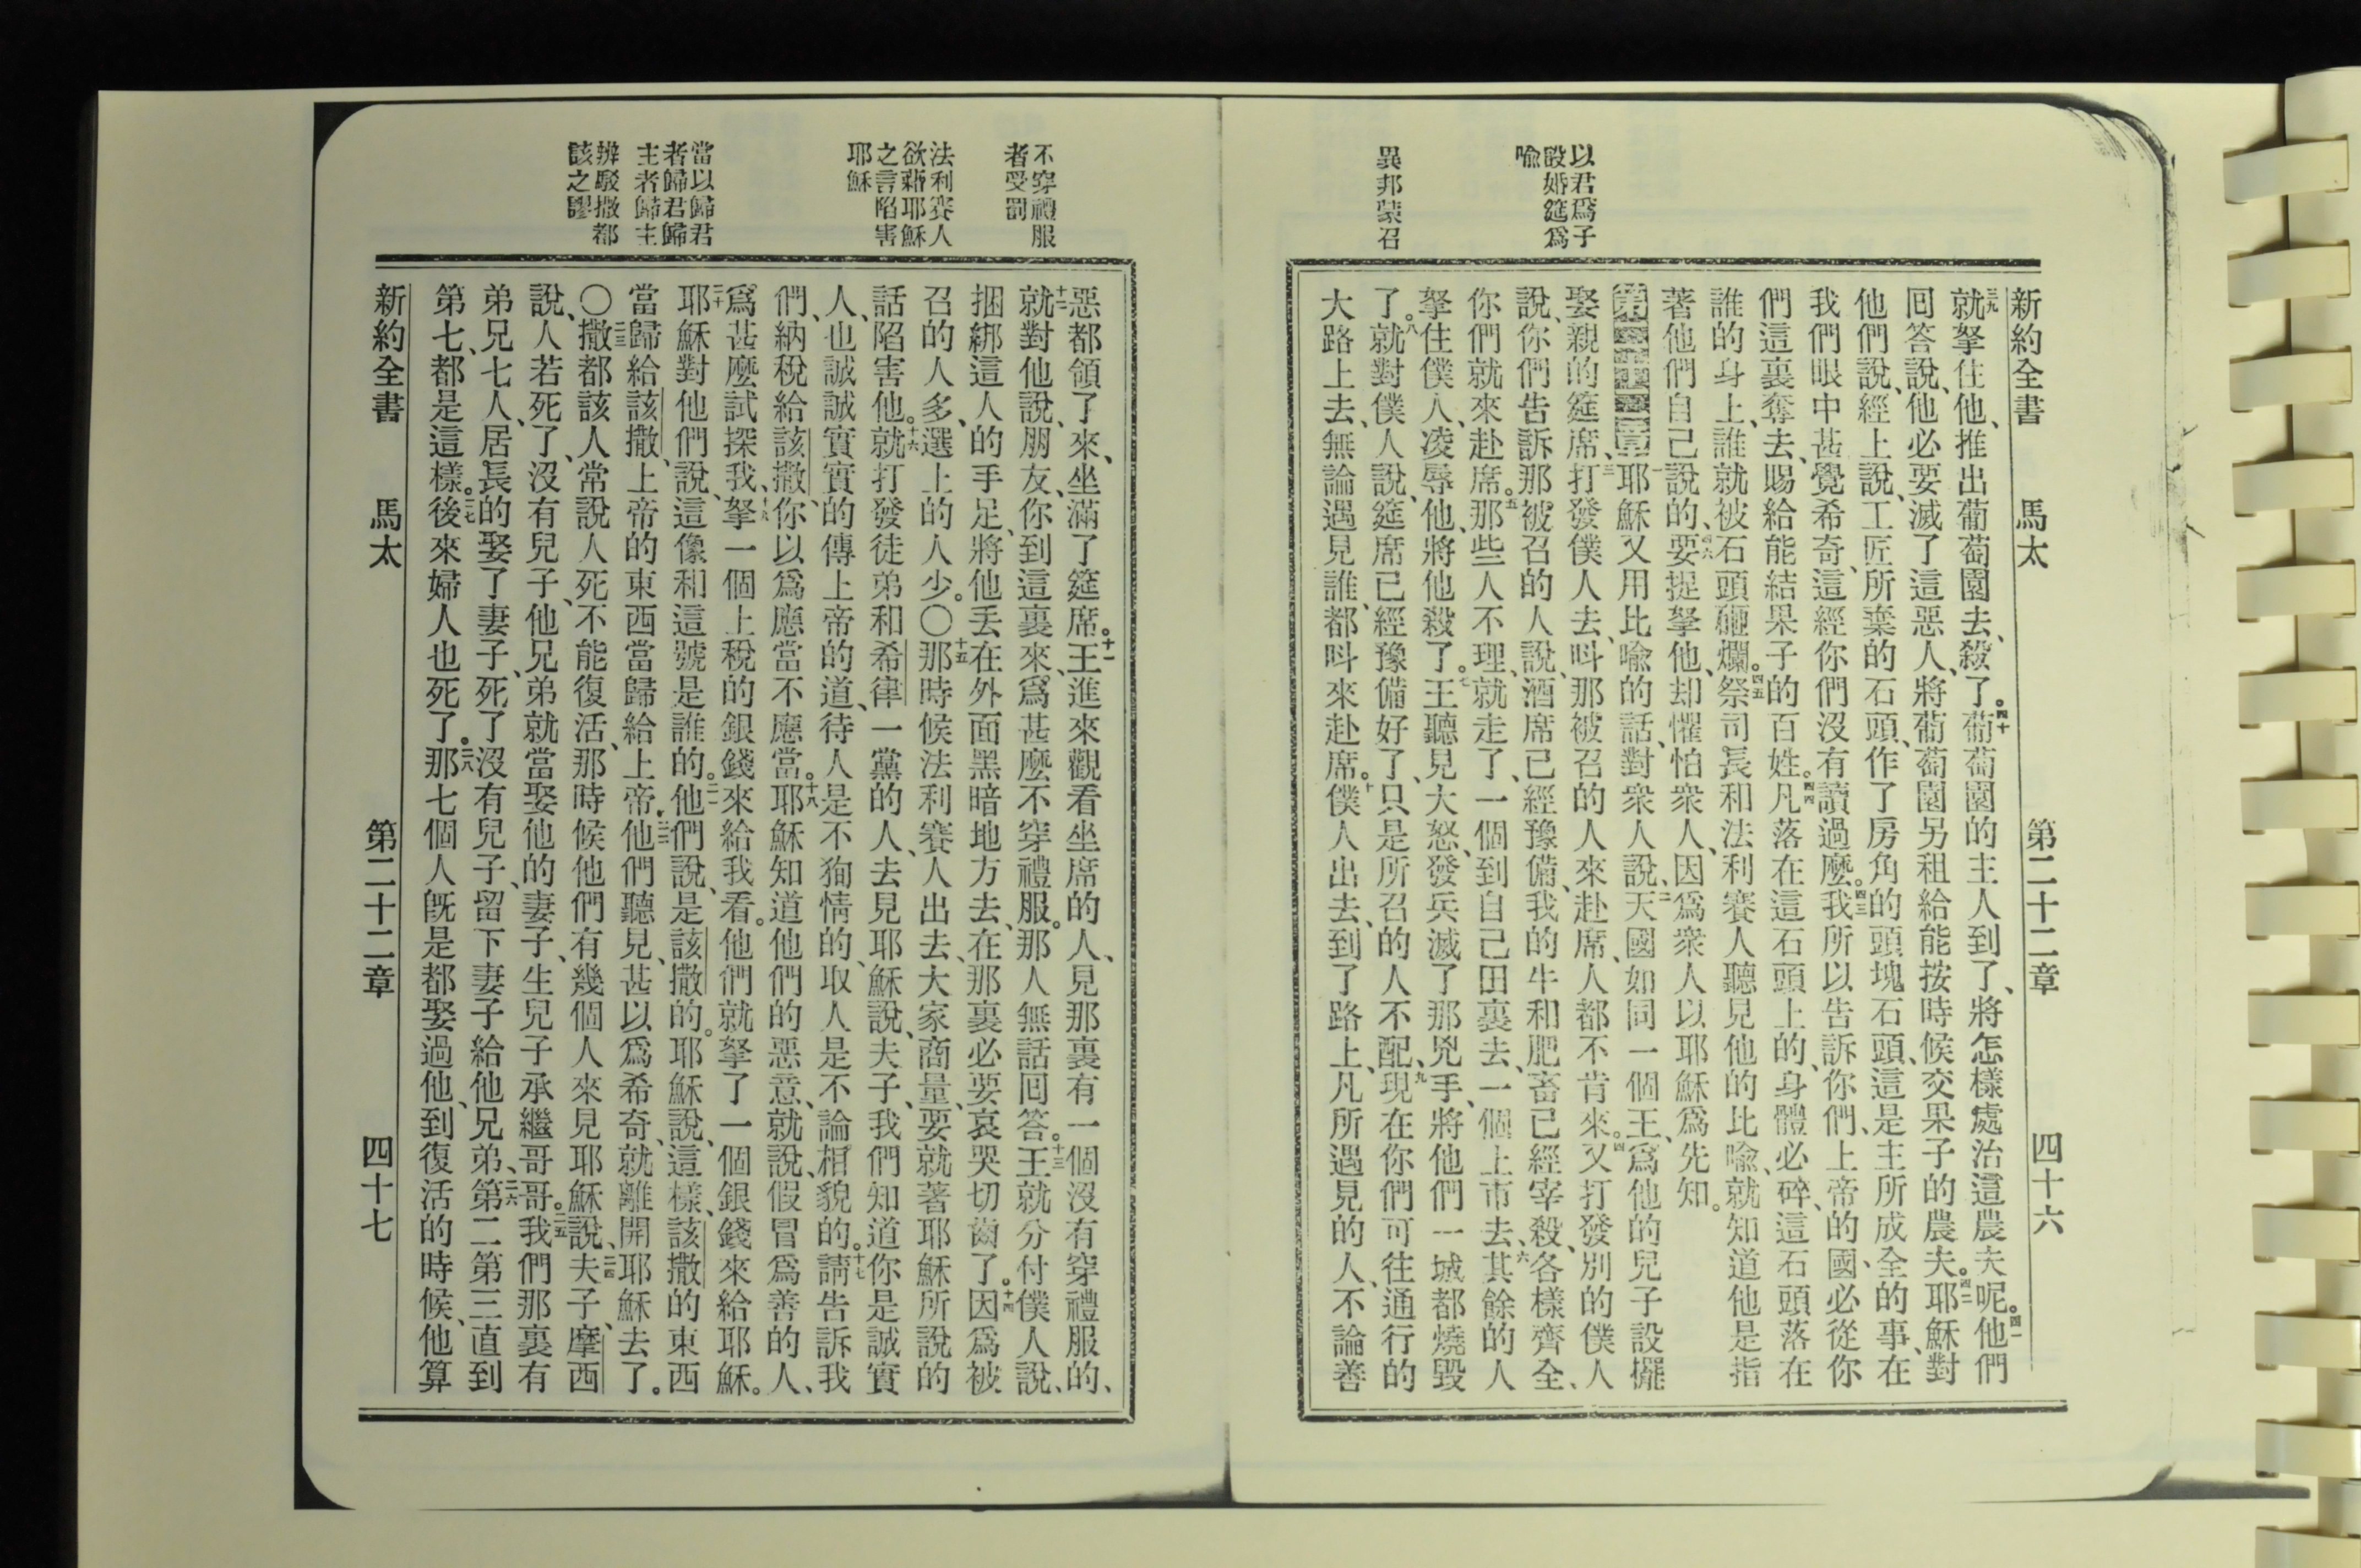 新約全書 馬太 第二十二章 四十六
以君爲子
設婚筵爲
喻
異邦蒙召
三九就拏住他、推出葡萄園去、殺了。四十葡萄園的主人到了、將怎樣處治這農夫呢。四一他們
回答說、他必要滅了這惡人、將葡萄園另租給能按時候交果子的農夫。四二耶穌對
他們說、經上說、工匠所棄的石頭、作了房角的頭塊石頭、這是主所成全的事、在
我們眼中甚覺希奇、這經你們沒有讀過麼。四三我所以告訴你們、上帝的國、必從你
們這裏奪去、賜給能結果子的百姓。四四凡落在這石頭上的、身體必碎、這石頭落在
誰的身上、誰就被石頭砸爛。四五祭司長和法利賽人聽見他的比喻、就知道他是指
著他們自己說的、四六要捉拏他、却懼怕衆人、因爲衆人以耶穌爲先知。
第二十二章一耶穌又用比喻的話、對衆人說、二天國如同一個王、爲他的兒子設擺
娶親的筵席、三打發僕人去、叫那被召的人來赴席、人都不肯來。四又打發別的僕人
說、你們告訴那被召的人說、酒席已經豫備、我的牛和肥畜已經宰殺、各樣齊全、
你們就來赴席。五那些人不理、就走了、一個到自己田裏去、一個上市去、六其餘的人
拏住僕人、凌辱他、將他殺了。七王聽見大怒、發兵滅了那兇手、將他們一城都燒毀
了。八就對僕人說、筵席已經豫備好了、只是所召的人不配、九現在你們可往通行的
大路上去、無論遇見誰、都叫來赴席。十僕人出去、到了路上、凡所遇見的人、不論善
不穿禮服
者受罰
法利賽人
欲藉耶穌
之言陷害
耶穌
當以歸君
者歸君歸
主者歸主
辨駁撒都
該之謬
惡都領了來、坐滿了筵席。十一王進來觀看坐席的人、見那裏有一個沒有穿禮服的、
十二就對他說、朋友、你到這裏來、爲甚麼不穿禮服。那人無話回答。十三王就分付僕人說、
捆綁這人的手足、將他丟在外面黑暗地方去、在那裏必要哀哭切齒了。十四因爲被
召的人多、選上的人少。〇十五那時候法利賽人出去、大家商量、要就著耶穌所說的
話陷害他。十六就打發徒弟和希律一黨的人、去見耶穌說、夫子、我們知道你是誠實
人、也誠誠實實的傳上帝的道、待人是不狥情的、取人是不論相貌的。十七請告訴我
們、納稅給該撒、你以爲應當不應當。十八耶穌知道他們的惡意、就說、假冒爲善的人、
爲甚麼試探我、十九拏一個上稅的銀錢來給我看。他們就拏了一個銀錢來給耶穌。
二十耶穌對他們說、這像和這號是誰的。二一他們說、是該撒的。耶穌說、這樣、該撒的東西
當歸給該撒、上帝的東西當歸給上帝。二二他們聽見、甚以爲希奇、就離開耶穌去了。
〇二三撒都該人常說人死不能復活、那時候他們有幾個人來見耶穌說、二四夫子、摩西
說、人若死了、沒有兒子、他兄弟就當娶他的妻子、生兒子承繼哥哥。二五我們那裏有
弟兄七人、居長的娶了妻子、死了沒有兒子、留下妻子給他兄弟、二六第二第三直到
第七、都是這樣。二七後來婦人也死了。二八那七個人旣是都娶過他、到復活的時候、他算
新約全書 馬太 第二十二章 四十七